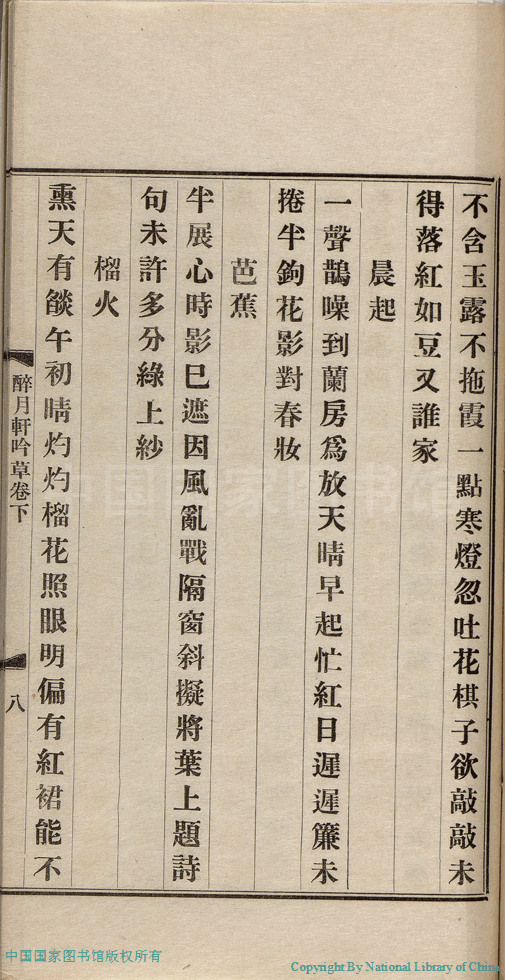 不含玉露不拖霞一點寒燈忽吐花棋子欲敲敲未
得落紅如豆又誰家
晨起
一聲鵲噪到蘭房爲放天晴早起忙紅日遲遲簾未
捲半鉤花影對春妝
芭蕉
半展心時影巳遮因風亂戰隔窗斜擬將葉上題詩
句未許多分綠上紗
榴火
熏天有燄午初晴灼灼榴花照眼明偏有紅裙能不
醉月軒吟草卷下
八
中国国家图书馆
中国国家图书馆版权所有
Copyright By National Library of China